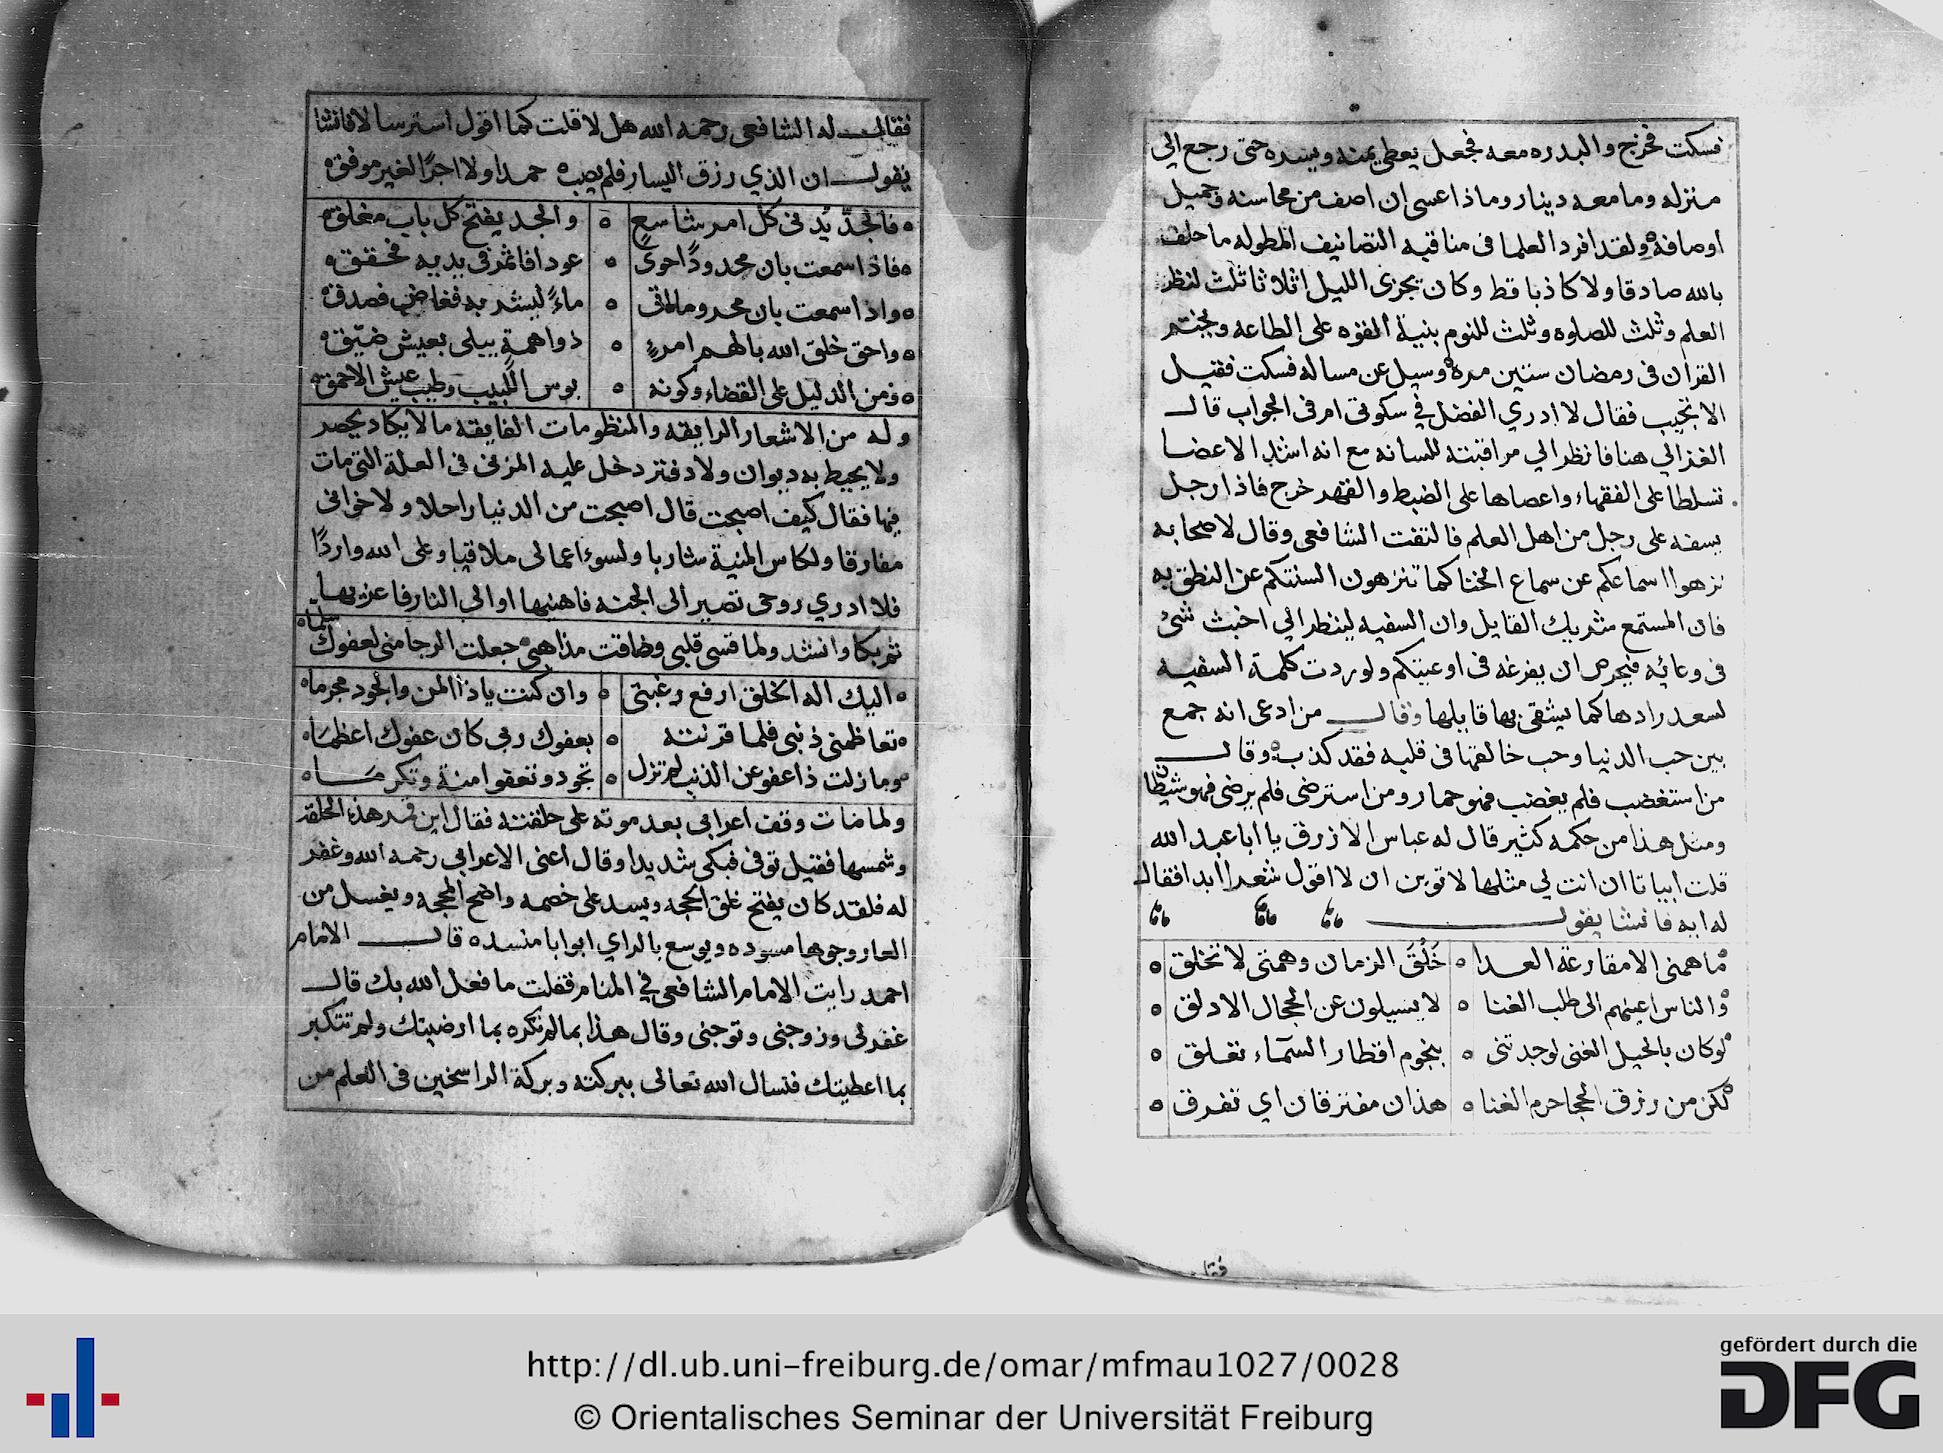 فسكت فخرج والبدره معه فجعل يعطي يمنه ويسره حتى رجع الي
منزله وما معه دينار وماذا عسى ان اصف من محاسنه وجميل
اوصافه ولقد افرد العلما فى مناقبه التصانيف المطوله ما حلف
بالله صادقا ولا كاذبا قط وكان يجزى الليل اثلاثا ثلث لنظر
العلم وثلث للصلوه وثلث للنوم بنية القوه على الطاعه ويختم
القران فى رمضان ستين مره وسيل عن مساله فسكت فقيل
الا تجيب فقال لا ادري الفضل في سكوتى ام فى الجواب قال
الغزالي هنا فانظر الي مراقبته للسانه مع انه اشد الاعضا
تسلطا على الفقهاء واعصاها على الضبط والقهر خرج فاذا رجل
يسفه على رجل من اهل العلم فالتفت الشافعى وقال لاصحابه
نزهوا اسماعكم عن سماع الخنا كما تنزهون السنتكم عن النطق به
فان المستمع شريك القايل وان السفيه لينظر الي اخبث شئ
فى وعائه فيحرص ان يفرغه فى اوعيتكم ولو ردت كلمة السفيه
لسعد رادها كما يشقى بها قايلها وقال من ادعى انه جمع
بين حب الدنيا وحب خالقها فى قلبه فقد كذب وقال
من استغضب فلم يغضب فهو حمار ومن استرضى فلم يرضى فهو شيطان
ومثل هذا من حكمه كثير قال له عباس الازرق يا ابا عبد الله
قلت ابياتا ان انت لي مثلها لاتوبن ان لا اقول شعرا ابدا فقال
له ايه فانشا يقول
ما همنى الا مقارعة العدا ه خَلُقَ الزمان وهمتى لا تخلق ه
والناس اعينهم الى طلب الغنا ه لا يسيلون عن الحجال الادلق ه
لو كان بالحيل الغنى لوجدتنى ه بنجوم اقطار السماء تعلق ه
لكن من رزق الحجا حرم الغنا ه هذان مفترقان اي تفرق ه
فقا
فقال له الشافعى رحمه الله هل لا قلت كما اقول استرسالا فانشا
يقول ان الذي رزق اليسار فلم يصب ه حمدا ولا اجرًا لغير موفق ه
ه فالجدّ يُدنى كل امر شاسعٍ ه والجد يفتح كل باب مغلق ه
ه فاذا سمعت بان مجدودًا حوى ه عودا فاثمر فى يديه فحقق ه
ه واذا سمعت بان محروما اتى ه ماءً ليشربه فغاض فصدق ه
ه واحق خلق الله بالهم امرءٍ ه ذوا همةٍ يبلى بعيش ضيّق ه
ه ومن الدليل على القضاء وكونه ه بوس اللبيب وطيب عيش الاحمق ه
وله من الاشعار الرايقه والمنظومات الفايقه ما لا يكاد يحصر
ولا يحيط به ديوان ولا دفتر دخل عليه المزنى فى العلة التى مات
فيها فقال كيف اصبحت قال اصبحت من الدنيا راحلا ولاخوانى
مفارقا ولكاس المنية شاربا ولسوء اعمالى ملاقيا وعلى الله واردًا
فلا ادري روحى تصير الى الجنه فاهنيها او الي النار فاعزيها
ثم بكا وانشد ولما قسى قلبى وضاقت مذاهبى ه جعلت الرجا منى لعفوك سلما ه
ه اليك اله الخلق ارفع رغبتى ه وان كنت ياذا المن والجود مجرما ه
ه تعاظمنى ذنبى فلما قرنته ه بعفوك ربى كان عفوك اعظما ه
ه وما زلت ذا عفو عن الذنب لم تزل ه تجود وتعفوا منة وتكرما ه
ولما مات وقف اعرابى بعد موته على حلقته فقال اين قمر هذه الحلقه
وشمسها فقيل توفى فبكى شديدا وقال اعنى الاعرابي رحمه الله وغفر
له فلقد كان يفتح غلق الحجه ويسد على خصمه واضح المحجه ويغسل من
العار وجوها مسوده ويوسع بالراي ابوابا منسده قال الامام
احمد رايت الامام الشافعى في المنام فقلت ما فعل الله بك قال
غفر لى وزوجنى وتوجنى وقال هذا بما لم تكره بما ارضيتك ولم تتكبر
بما اعطيتك فنسال الله تعالى ببركته وبركة الراسخين فى العلم من
http://dl.ub.uni-freiburg.de/omar/mfmau1027/0028
© Orientalisches Seminar der Universität Freiburg
gefördert durch die
DFG